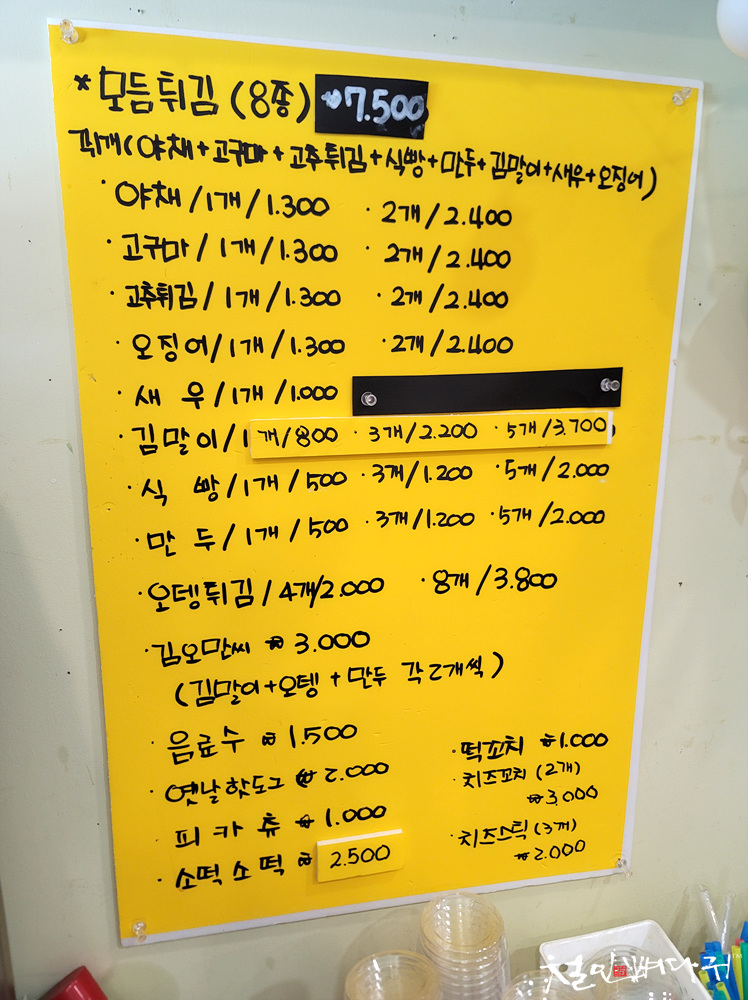 * 모듬튀김 (8종) ₩7.500
(야채+고구마+고추튀김+식빵+만두+김말이+새우+오징어)
· 야채/1개/1.300 · 2개/2.400
· 고구마/1개/1.300 · 2개/2.400
· 고추튀김/1개/1.300 · 2개/2.400
· 오징어/1개/1.300 · 2개/2.400
· 새우/1개/1.000
· 김말이/1개/800 · 3개/2.200 · 5개/3.700
· 식빵/1개/500 · 3개/1.200 · 5개/2.000
· 만두/1개/500 · 3개/1.200 · 5개/2.000
· 오뎅튀김/4개/2.000 · 8개/3.800
· 김오만씨 ₩3.000
(김말이+오뎅+만두 각2개씩)
· 음료수 ₩1.500
· 옛날핫도그 ₩2.000
· 피카츄 ₩1.000
· 소떡소떡 ₩2.500
· 떡꼬치 ₩1.000
· 치즈꼬치 (2개)
₩3,000
· 치즈스틱 (3개)
₩2.000
철인뼈다귀